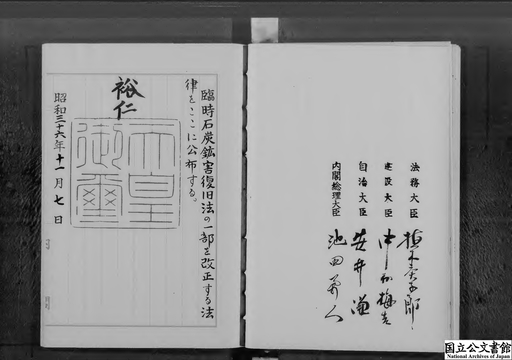 臨時石炭鉱害復旧法の一部を改正する法
律をここに公布する。
裕仁
天皇
御璽
昭和三十六年十一月七日
法務大臣 植木庚子郎
建設大臣 中村梅吉
自治大臣 安井謙
内閣総理大臣 池田勇人
国立公文書館
National Archives of Japan